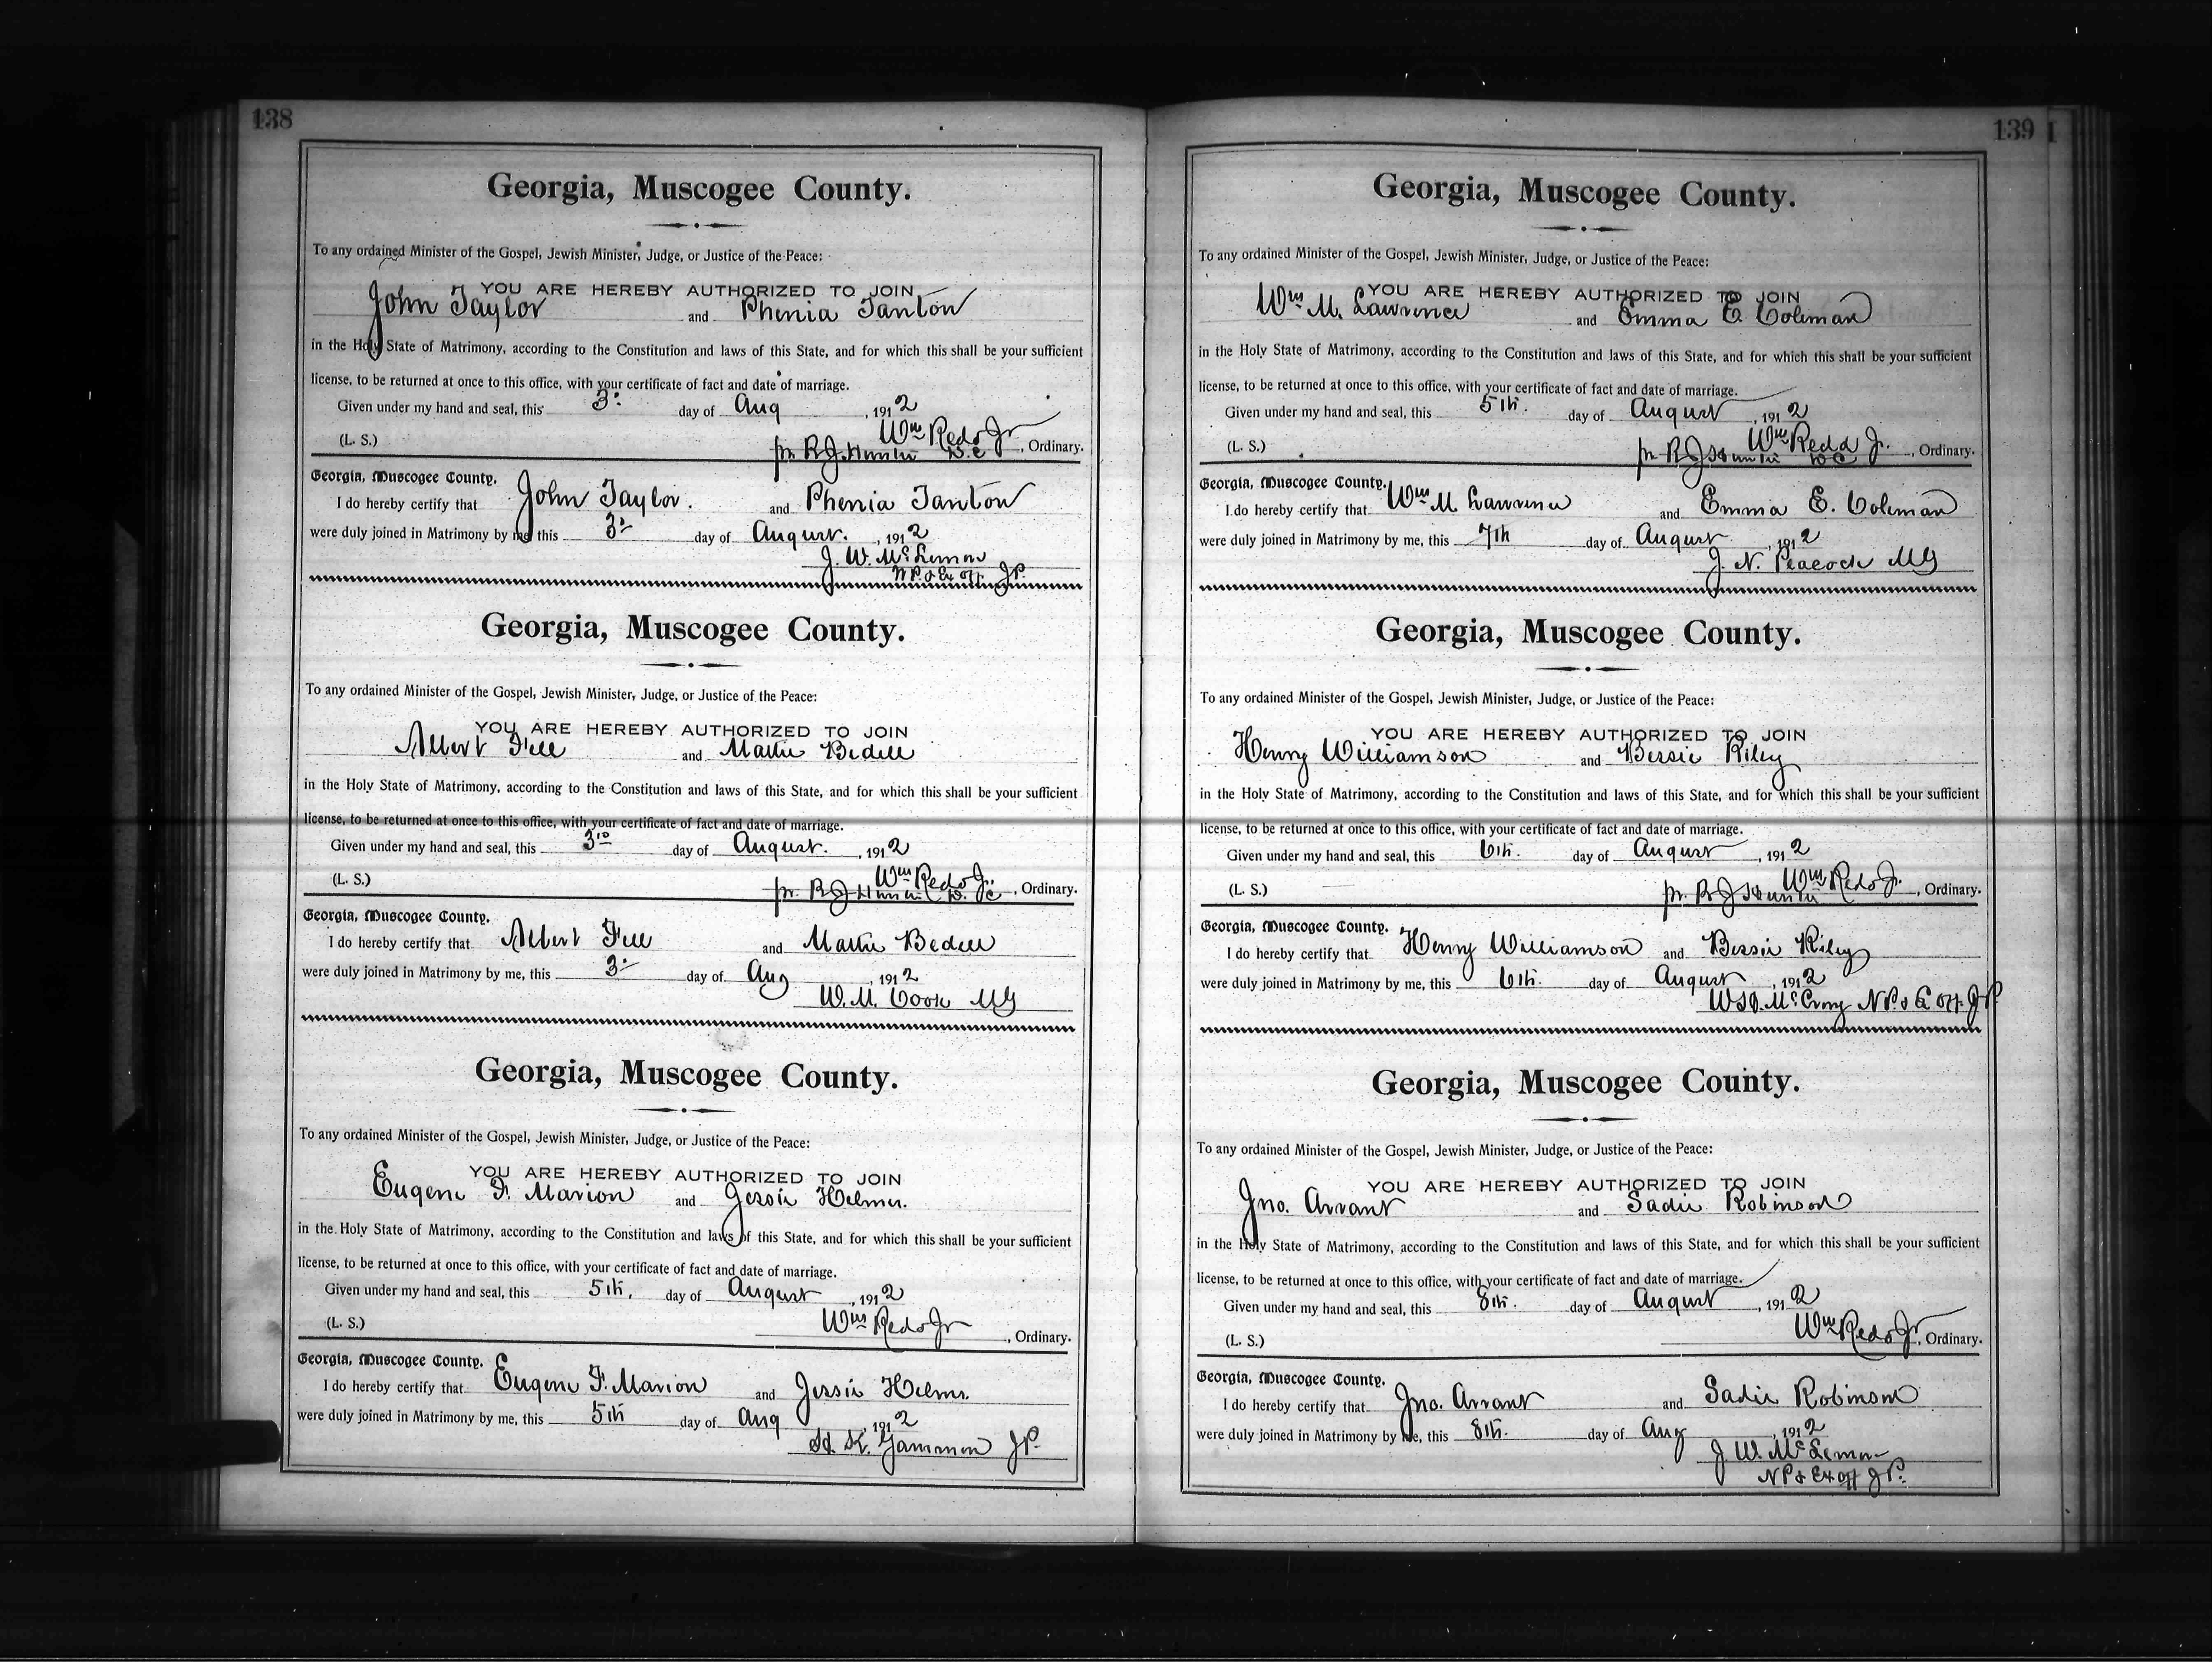 138
Georgia, Muscogee County.
To any ordained Minister of the Gospel, Jewish Minister, Judge, or Justice of the Peace:
YOU ARE HEREBY AUTHORIZED TO JOIN
John Taylor and Phenia Tanton
in the Holy State of Matrimony, according to the Constitution and laws of this State, and for which this shall be your sufficient
license, to be returned at once to this office, with your certificate of fact and date of marriage.
Given under my hand and seal, this 3. day of Aug, 1912
Wm Redd Jr
(L. S.) pr R J Hunter D. C, Ordinary.
Georgia, Muscogee County.
I do hereby certify that John Taylor. and Phenia Tanton
were duly joined in Matrimony by me this 3. day of August., 1912
J. W. McLemon
N P. & Ex Off. JP.
Georgia, Muscogee County.
To any ordained Minister of the Gospel, Jewish Minister, Judge, or Justice of the Peace:
YOU ARE HEREBY AUTHORIZED TO JOIN
Albert and Bedell
in the Holy State of Matrimony, according to the Constitution and laws of this State, and for which this shall be your sufficient
license, to be returned at once to this office, with your certificate of fact and date of marriage.
Given under my hand and seal, this 3rd day of August., 1912
Wm Redd Jr.
(L. S.) pr. R J Hunter D. C, Ordinary.
Georgia, Muscogee County.
I do hereby certify that Albert and Bedell
were duly joined in Matrimony by me, this 3. day of Aug, 1912
W. M. Cook MG
Georgia, Muscogee County.
To any ordained Minister of the Gospel, Jewish Minister, Judge, or Justice of the Peace:
YOU ARE HEREBY AUTHORIZED TO JOIN
Eugene F. Marion and Jessie Helms.
in the Holy State of Matrimony, according to the Constitution and laws of this State, and for which this shall be your sufficient
license, to be returned at once to this office, with your certificate of fact and date of marriage.
Given under my hand and seal, this 5th. day of August, 1912
Wm Redd Jr
(L. S.) , Ordinary.
Georgia, Muscogee County.
I do hereby certify that Eugene F. Marion and Jessie Helms.
were duly joined in Matrimony by me, this 5th day of Aug, 1912
K. Gammon JP.
139
Georgia, Muscogee County.
To any ordained Minister of the Gospel, Jewish Minister, Judge, or Justice of the Peace:
YOU ARE HEREBY AUTHORIZED TO JOIN
Wm M. Lawrence and Emma E. Coleman
in the Holy State of Matrimony, according to the Constitution and laws of this State, and for which this shall be your sufficient
license, to be returned at once to this office, with your certificate of fact and date of marriage.
Given under my hand and seal, this 5th. day of August, 1912
Wm Redd Jr.
(L. S.) pr R J Hunter D C, Ordinary.
Georgia, Muscogee County.
I do hereby certify that Wm M. Lawrence and Emma E. Coleman
were duly joined in Matrimony by me, this 7th day of August, 1912
J. N. Peacock MG
Georgia, Muscogee County.
To any ordained Minister of the Gospel, Jewish Minister, Judge, or Justice of the Peace:
YOU ARE HEREBY AUTHORIZED TO JOIN
Henry Williamson and Bessie Riley
in the Holy State of Matrimony, according to the Constitution and laws of this State, and for which this shall be your sufficient
license, to be returned at once to this office, with your certificate of fact and date of marriage.
Given under my hand and seal, this 6th. day of August, 1912
Wm Redd Jr.
(L. S.) pr. R J Hunter, Ordinary.
Georgia, Muscogee County.
I do hereby certify that Henry Williamson and Bessie Riley
were duly joined in Matrimony by me, this 6th. day of August, 1912
McCrory N P. & E Off. J P
Georgia, Muscogee County.
To any ordained Minister of the Gospel, Jewish Minister, Judge, or Justice of the Peace:
YOU ARE HEREBY AUTHORIZED TO JOIN
Jno. Arrant and Sadie Robinson
in the Holy State of Matrimony, according to the Constitution and laws of this State, and for which this shall be your sufficient
license, to be returned at once to this office, with your certificate of fact and date of marriage.
Given under my hand and seal, this 8th. day of August, 1912
Wm Redd Jr.
(L. S.) , Ordinary.
Georgia, Muscogee County.
I do hereby certify that Jno. Arrant and Sadie Robinson
were duly joined in Matrimony by me, this 8th. day of Aug, 1912
J W. McLemon
N P & Ex off J P.